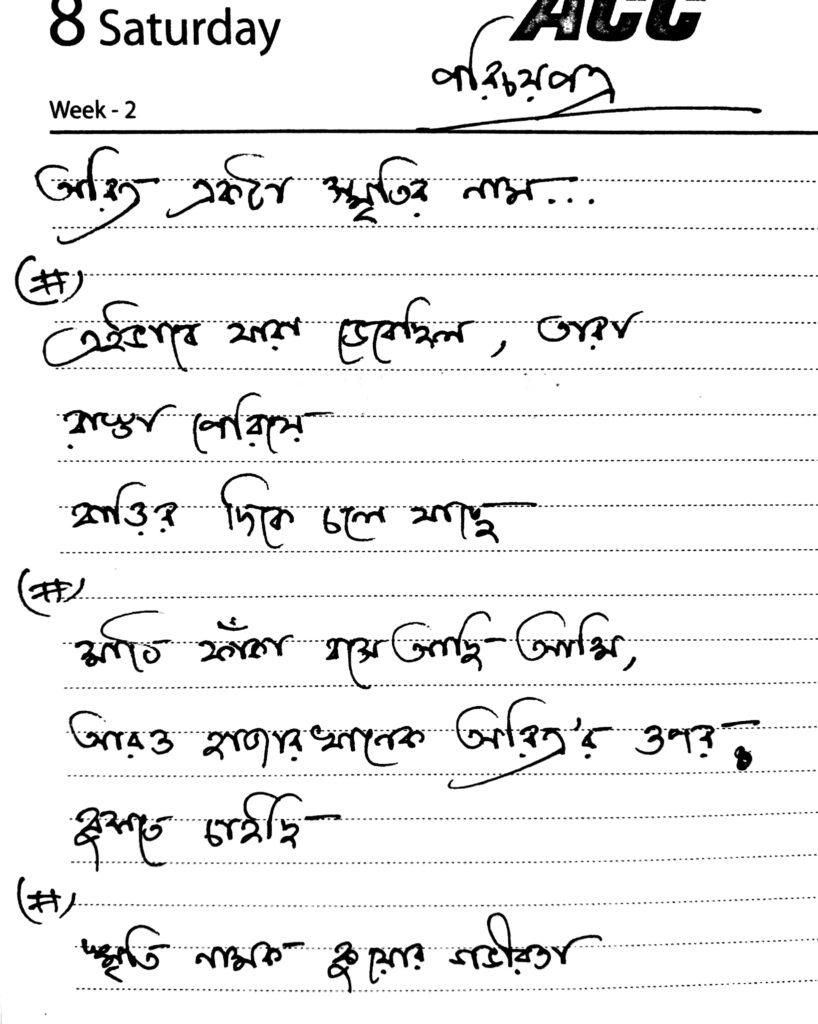 8 Saturday
ACC
পরিচয়পত্র
Week - 2
অরিত্র একটা স্মৃতির নাম...
(#)
এইভাবে যারা ভেবেছিল, তারা
রাস্তা পেরিয়ে
বাড়ির দিকে চলে যাচ্ছে
(#)
মাঠে ফাঁকা বসে আছি আমি,
আরও হাজারখানেক অরিত্র'র ওপর
বুঝতে চাইছি
(#)
স্মৃতি নামক কুয়োর গভীরতা